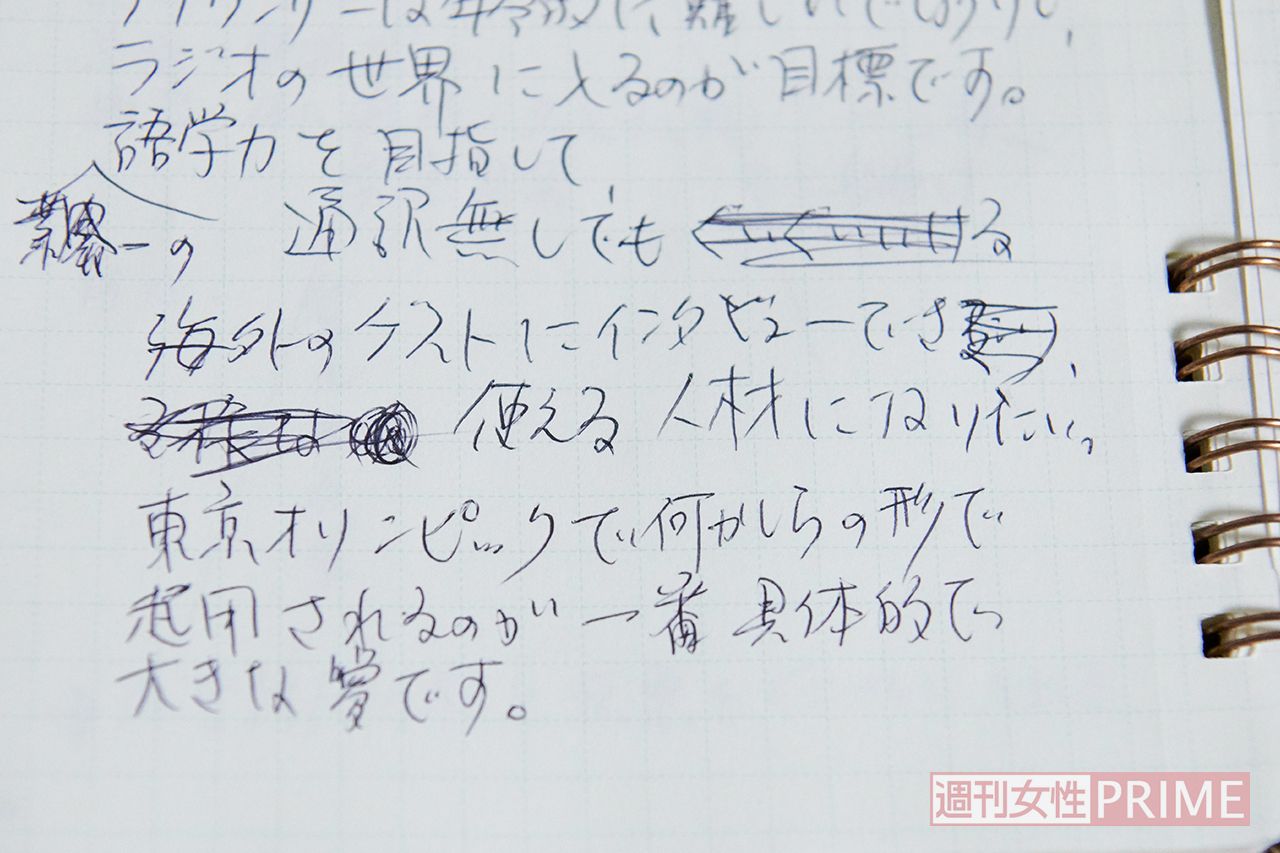 アナウンサーは年令的に難しいでしょうけど、
ラジオの世界に入るのが目標です。
語学力を目指して、
業界一の 通訳無しでも
海外のゲストにインタビューでき、
使える人材になりたい。
東京オリンピックで何かしらの形で
起用されるのが一番具体的で
大きな夢です。
週刊女性PRIME